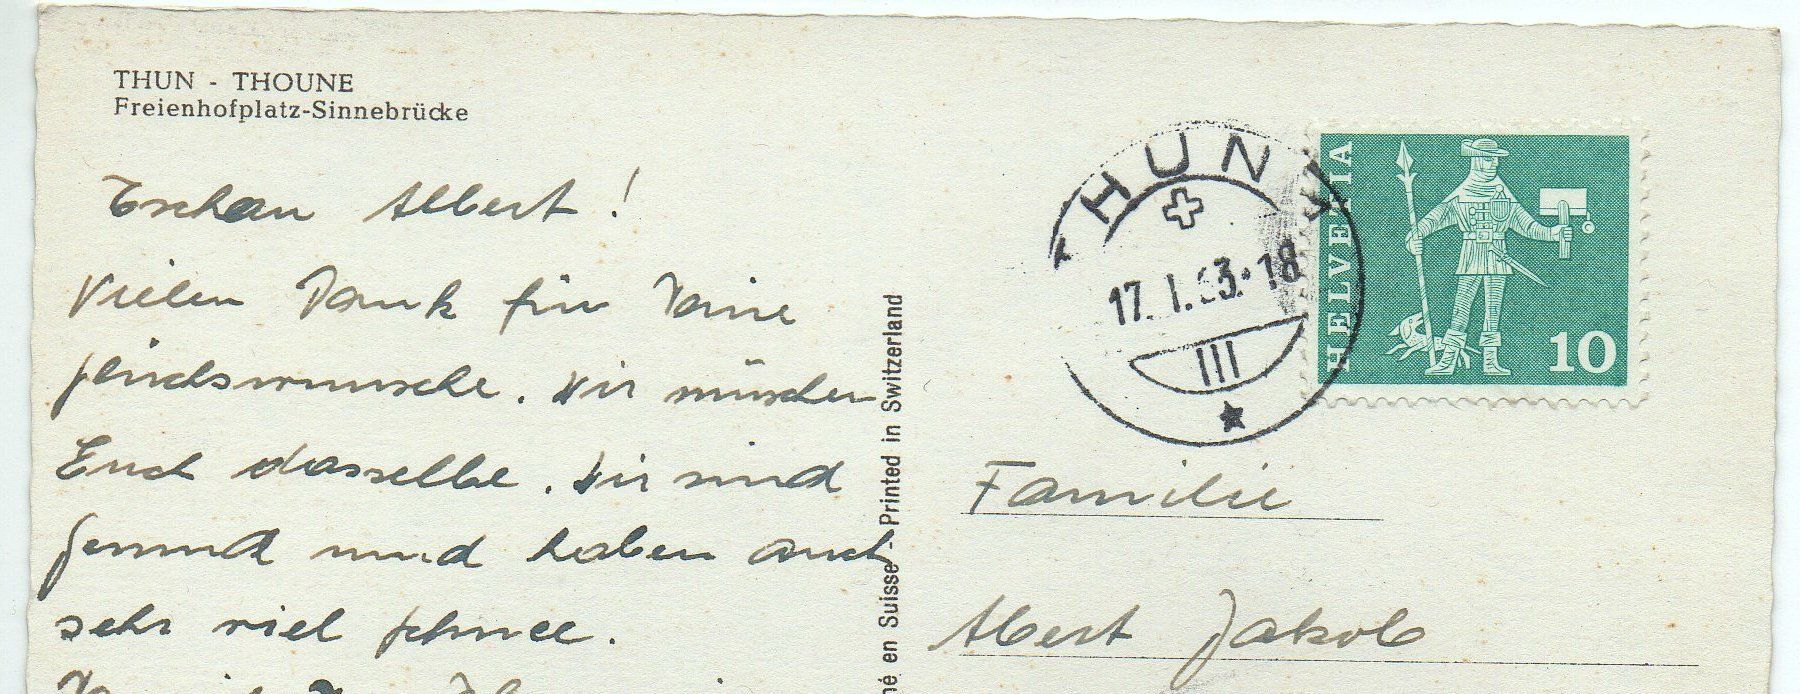 THUN - THOUNE
Freienhofplatz-Sinnebrücke
Tschau Albert!
Vielen Dank für Deine
Glückswünsche. Wir wünschen
Euch dasselbe. Wir sind
gesund und haben auch
sehr viel Schnee.
né en Suisse - Printed in Switzerland
THUN
17. I. 63. 18
III
HELVETIA
10
Familie
Albert Jakob